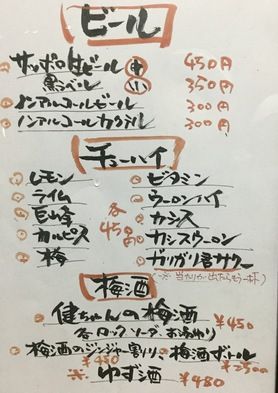 ビール
サッポロ生ビール 中 450円
黒ラベル 小 350円
ノンアルコールビール 300円
ノンアルコールカクテル 300円
チューハイ
レモン
ライム
巨峰
カルピス
梅
各450円
ビタミン
ウーロンハイ
カシス
カシスウーロン
ガリガリ君サワー
(※ 当たりが出たらもう一杯)
梅酒
健ちゃんの梅酒 ¥450
各ロック ソーダ お湯わり
梅酒のジンジャー割り ¥450
梅酒ボトル ¥2500
※ ゆず酒 ¥480